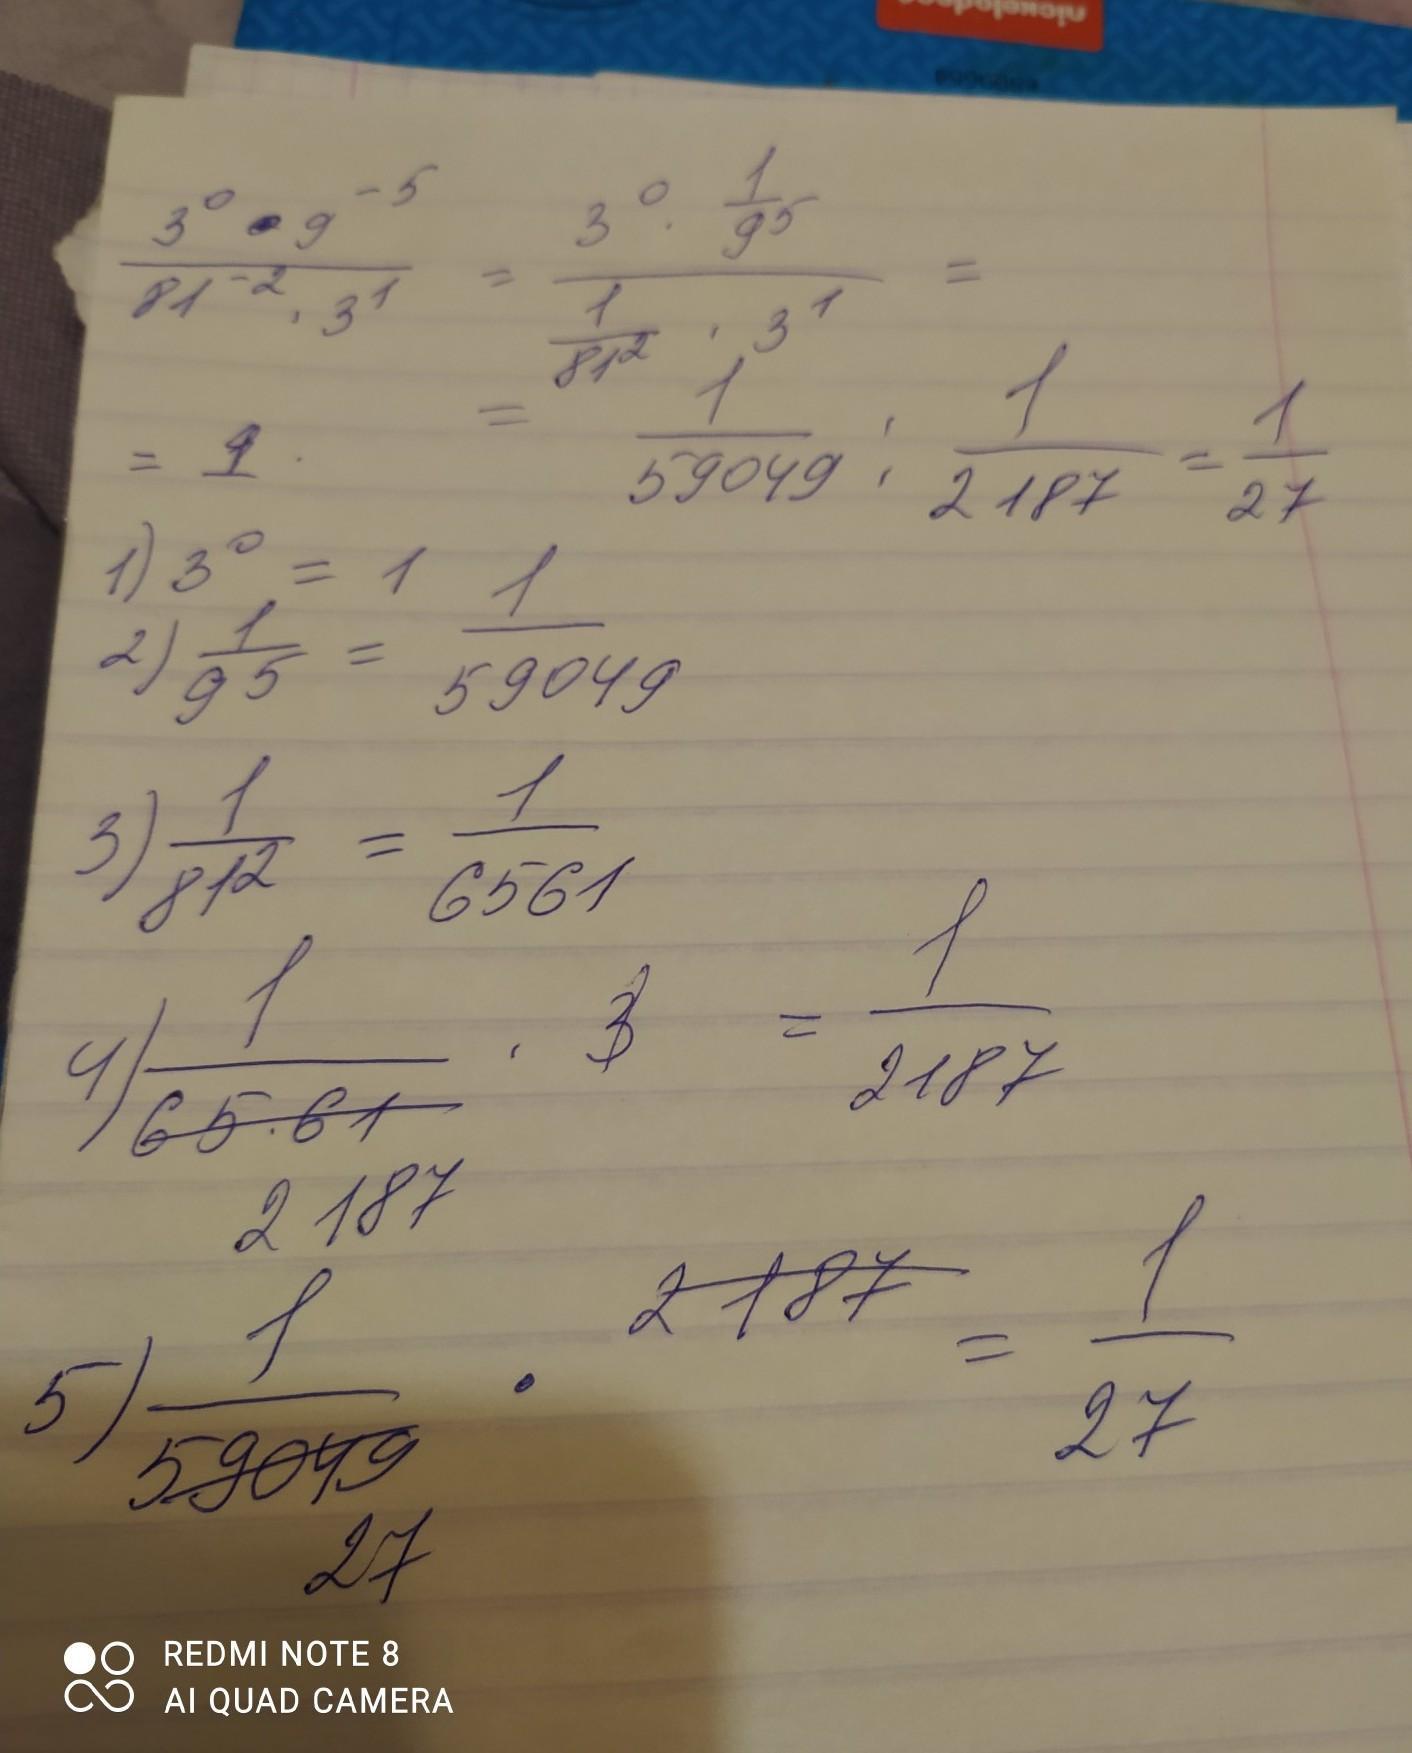 nickelodeon
3⁰ · 9⁻⁵ / 81⁻² · 3¹ = 3⁰ · 1/9⁵ / 1/81² · 3¹ =
= 1 · = 1/59049 : 1/2187 = 1/27
1) 3⁰ = 1
2) 1/9⁵ = 1/59049
3) 1/81² = 1/6561
4) 1/6561 · 3 = 1/2187
2187
5) 1/59049 · 2187 = 1/27
27
REDMI NOTE 8
AI QUAD CAMERA